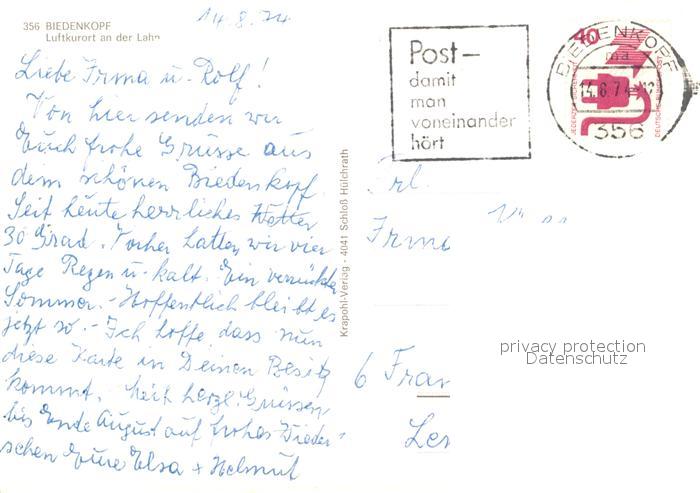 14.8.74
356 BIEDENKOPF
Luftkurort an der Lahn
Liebe Irma u. Rolf!
Von hier senden wir
Euch frohe Grüsse aus
dem schönen Biedenkopf.
Seit heute herrliches Wetter
30 Grad. Vorher hatten wir vier
Tage Regen u. kalt. Ein verrückter
Sommer. - Hoffentlich bleibt es
jetzt so. - Ich hoffe dass nun
diese Karte in Deinen Besitz
kommt. Mit herzl. Grüssen
bis Ende August auf frohes Wieder-
sehen Eure Elsa + Helmut
Krapohl-Verlag - 4041 Schloß Hülchrath
Post-
damit
man
voneinander
hört
40
BIEDENKOPF
14.8.74
356
JEDERZEIT
DEUTSCHE
Frl.
Irma
6 Fran
privacy protection
Datenschutz